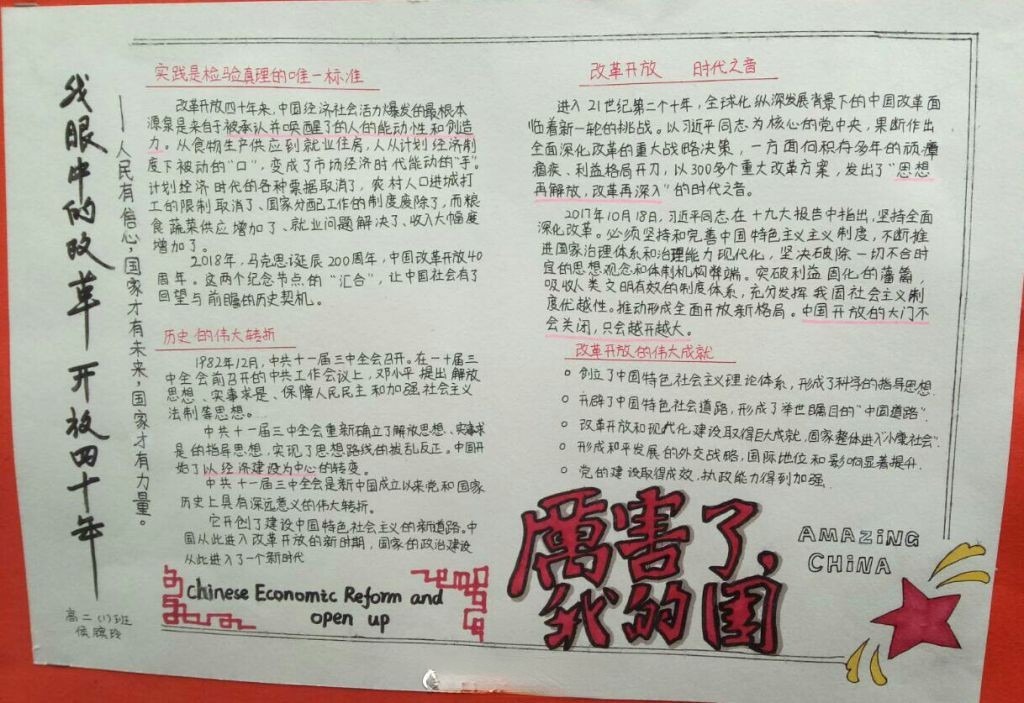 我眼中的改革开放四十年
——人民有信心,国家才有未来,国家才有力量。
高二(1)班
实践是检验真理的唯一标准
改革开放四十年来,中国经济社会活力爆发的最根本
源泉是来自于被承认并唤醒了的人的能动性和创造
力。从食物生产供应到就业住房,人从计划经济制
度下被动的“口”,变成了市场经济时代能动的“手”。
计划经济时代的各种票据取消了,农村人口进城打
工的限制取消了、国家分配工作的制度废除了,而粮
食蔬菜供应增加了、就业问题解决了、收入大幅度
增加了。
2018年,马克思诞辰200周年,中国改革开放40
周年。这两个纪念节点的“汇合”,让中国社会有了
回望与前瞻的历史契机。
历史的伟大转折
1982年12月,中共十一届三中全会召开。在一十届三
中全会前召开的中共工作会议上,邓小平提出解放
思想、实事求是、保障人民民主和加强社会主义
法制等思想。
中共十一届三中全会重新确立了解放思想、实事求
是的指导思想,实现了思想路线的拨乱反正。中国开
始了以经济建设为中心的转变。
中共十一届三中全会是新中国成立以来党和国家
历史上具有深远意义的伟大转折。
它开创了建设中国特色社会主义的新道路。中
国从此进入改革开放的新时期,国家的政治建设
从此进入了一个新时代
Chinese Economic Reform and
open up
改革开放 时代之音
进入21世纪第二个十年,全球化纵深发展背景下的中国改革面
临着新一轮的挑战。以习近平同志为核心的党中央,果断作出
全面深化改革的重大战略决策,一方面向积存多年的顽瘴
痼疾、利益格局开刀,以300多个重大改革方案,发出了“思想
再解放,改革再深入”的时代之音。
2017年10月18日,习近平同志在十九大报告中指出,坚持全面
深化改革。必须坚持和完善中国特色主义主义制度,不断推
进国家治理体系和治理能力现代化,坚决破除一切不合时
宜的思想观念和体制机构弊端。突破利益固化的藩篱,
吸收人类文明有效的制度体系,充分发挥我国社会主义制
度优越性。推动形成全面开放新格局。中国开放的大门不
会关闭,只会越开越大。
改革开放的伟大成就
○ 创立了中国特色社会主义理论体系,形成了科学的指导思想.
○ 开辟了中国特色社会道路,形成了举世瞩目的“中国道路”.
○ 改革开放和现代化建设取得巨大成就,国家整体进入“小康社会”.
○ 形成和平发展的外交战略,国际地位和影响显著提升.
○ 党的建设取得成效,执政能力得到加强.
厉害了,
我的国
AMAZiNG
CHiNA